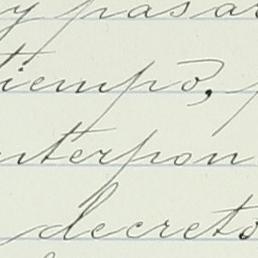 y pasar
tiempo,
nterpon
decreto